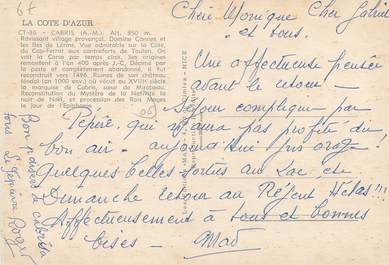 6f
LA COTE D'AZUR
CT-36 - CABRIS (A.-M.). Alt. 550 m.
Ravissant village provençal. Domine Cannes et
les Iles de Lérins. Vue admirable sur la Côte,
du Cap-Ferrat aux contreforts de Toulon. On
voit la Corse par temps clair. Ses origines
remontent à l'an 400 après J.-C. Décimé par
la peste et complètement abandonné, il fut
reconstruit vers 1496. Ruines de son château
féodal (an 1000 env.) où vécut au XVIIIe siècle
la marquise de Cabris, sœur de Mirabeau.
Reconstitution du Mystère de la Nativité la
nuit de Noël, et procession des Rois Mages
le jour de l'Epiphanie.
(06)
Bon baisers de Cabris à
tous
Roger
Chère Monique Cher Gabriel
et tous.
Une affectueuse pensée
avant le retour -
Séjour compliqué par
Pépère qui n'aura pas profité du
bon air - aujourd'hui gros orage !
Quelques belles sorties au Lac, etc
Dimanche retour au Régent Hélas !!!
Affectueusement à tous et bonnes
bises - Mad